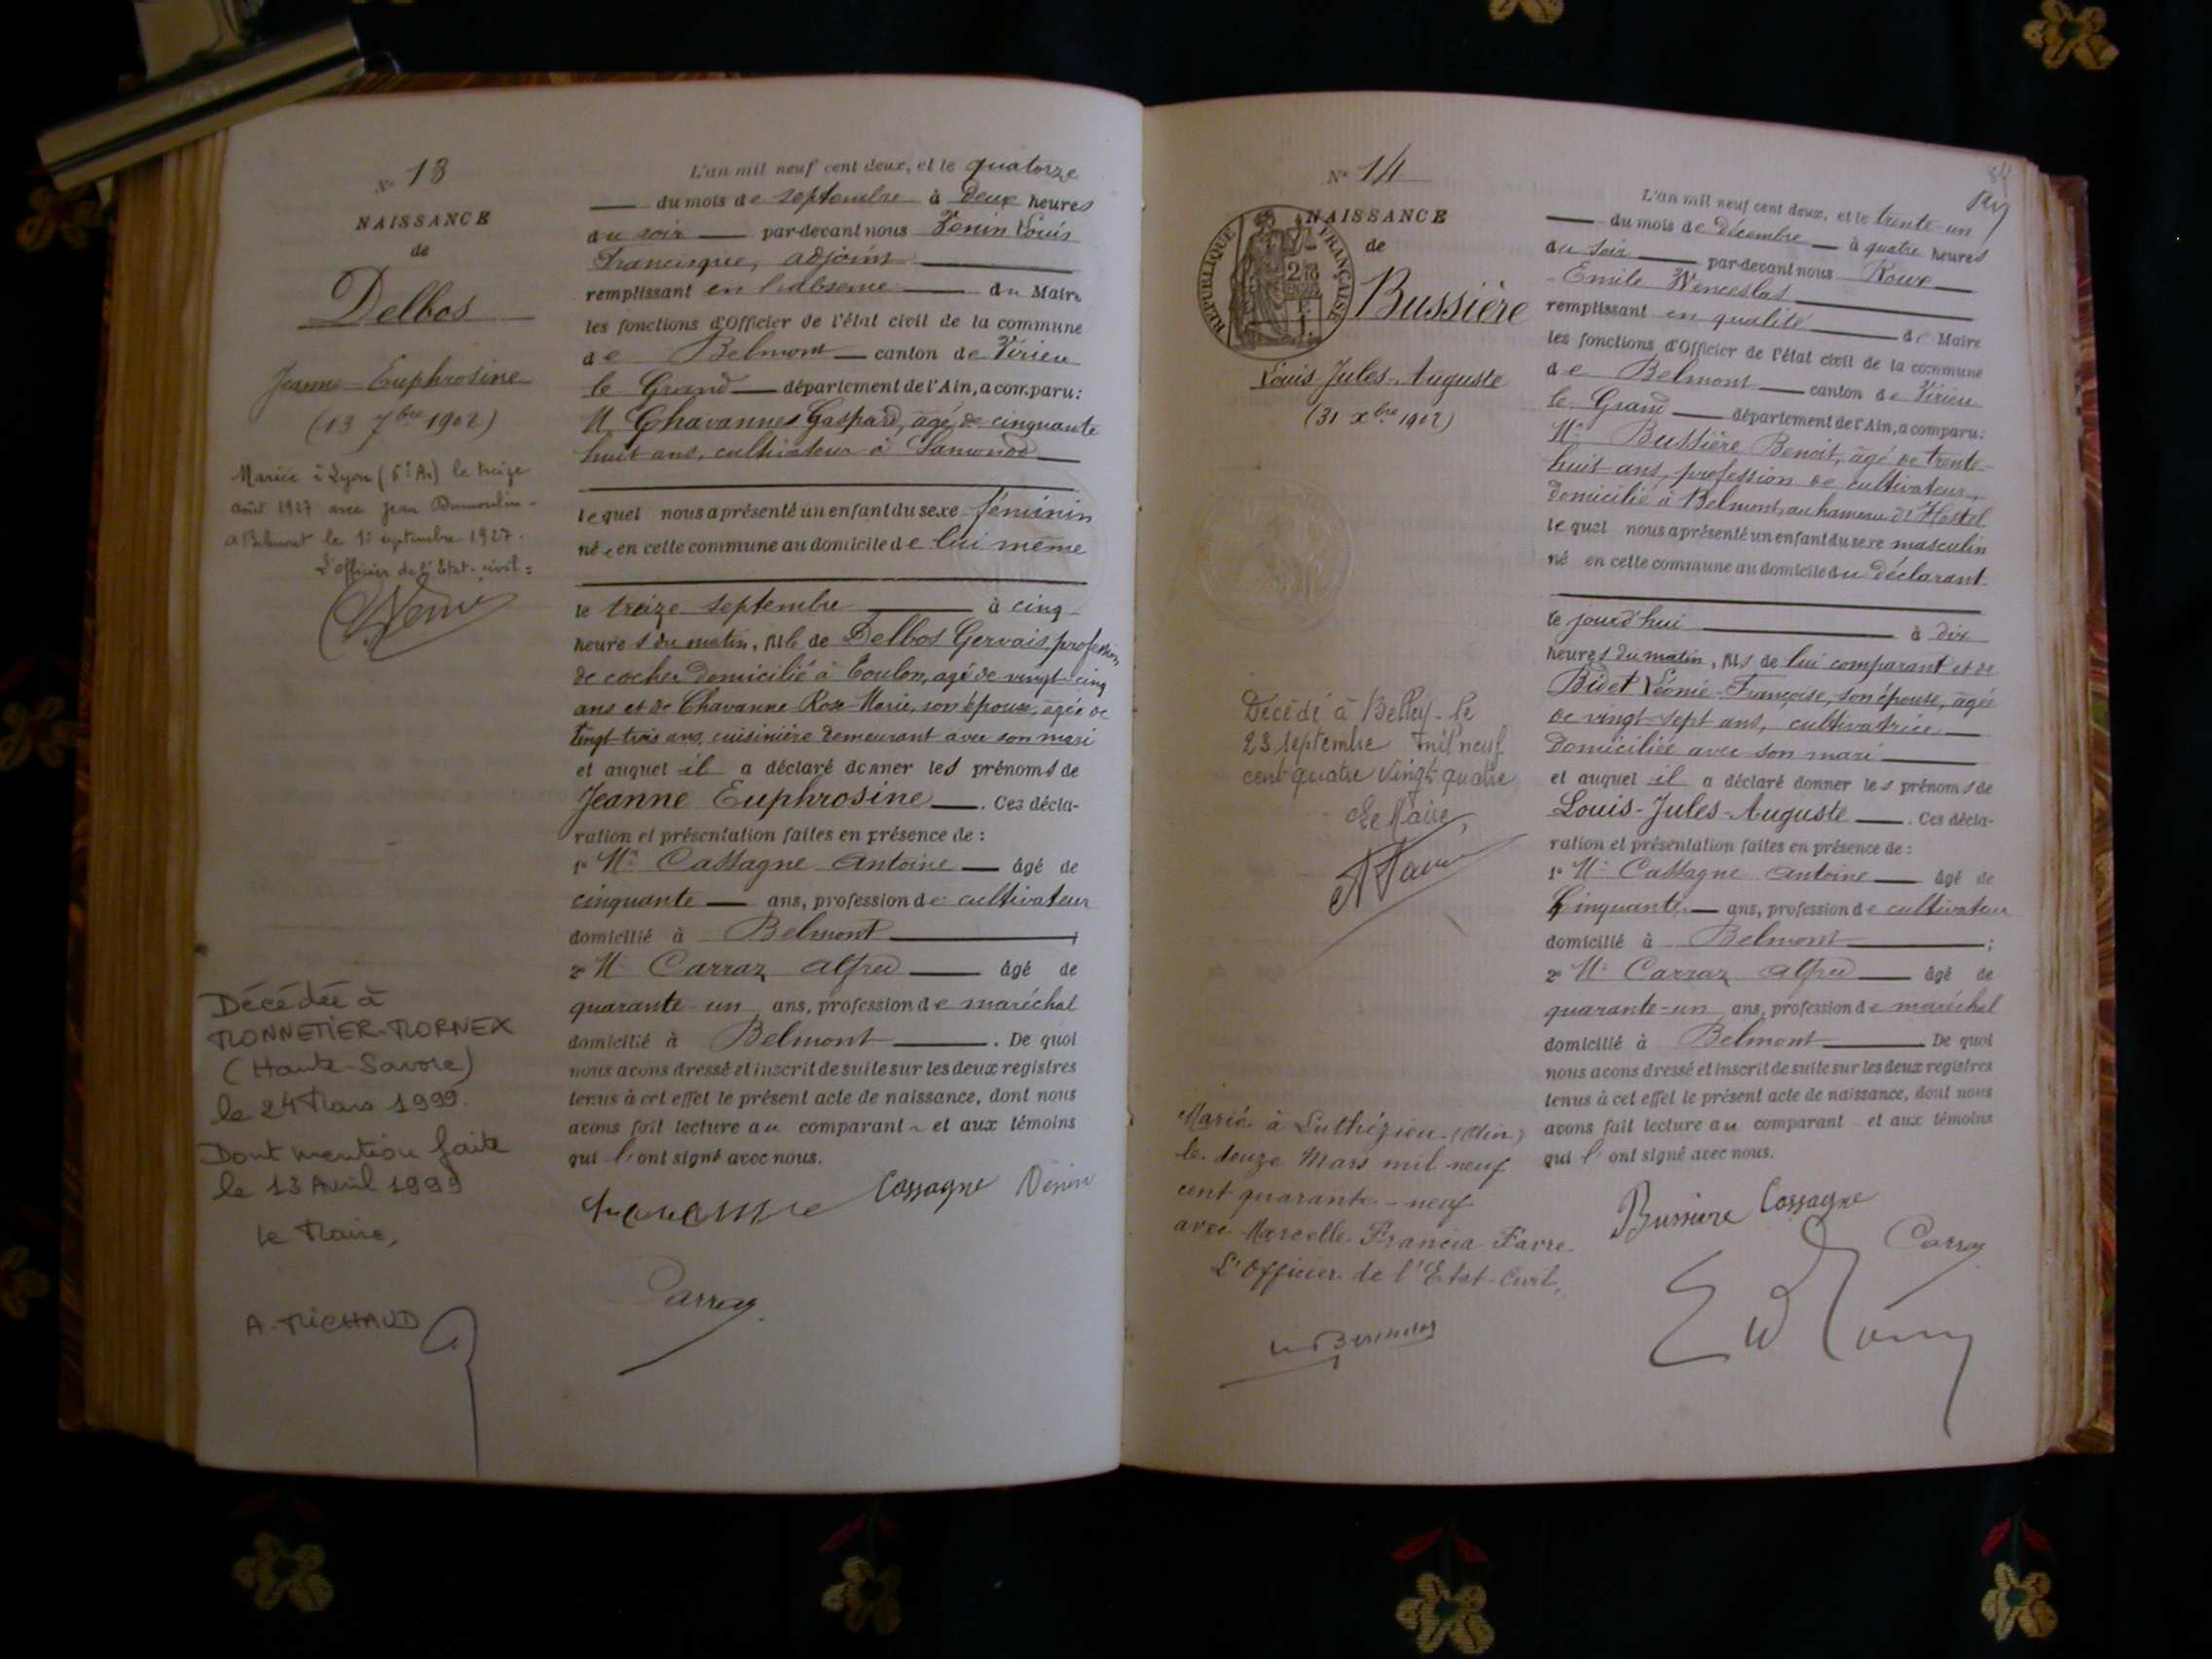 N° 13
NAISSANCE
de
Delbos
Jeanne-Euphrosine
(13 7bre 1902)
Mariée à Lyon (6e Ar) le treize
août 1927 avec Jean Dumoulin -
à Belmont le 1er septembre 1927.
L'officier de l'Etat-civil =
Décédée à
MONNETIER-MORNEX
(Haute-Savoie)
le 24 Mars 1999.
Dont mention faite
le 13 Avril 1999
le Maire,
A. MICHAUD
L'an mil neuf cent deux, et le quatorze
du mois de septembre à deux heures
du soir par-devant nous Venin Louis
Francisque, adjoint
remplissant en l'absence du Maire
les fonctions d'Officier de l'état civil de la commune
de Belmont canton de Virieu
le Grand département de l'Ain, a comparu:
M Chavannes Gaspard, âgé de cinquante
huit ans, cultivateur à
lequel nous a présenté un enfant du sexe féminin
née en cette commune au domicile de lui même
le treize septembre à cinq
heures du matin, fille de Delbos Gervais, profession
de cocher domicilié à Toulon, agé de vingt-cinq
ans et de Chavanne Rose-Marie, son épouse, agée de
vingt-trois ans, cuisinière demeurant avec son mari
et auquel il a déclaré donner les prénoms de
Jeanne Euphrosine. Ces décla-
ration et présentation faites en présence de :
1° Mr Cassagne Antoine âgé de
cinquante ans, profession de cultivateur
domicilié à Belmont ;
2° M Carraz Alfred âgé de
quarante-un ans, profession de maréchal
domicilié à Belmont. De quoi
nous avons dressé et inscrit de suite sur les deux registres
tenus à cet effet le présent acte de naissance, dont nous
avons fait lecture au comparant et aux témoins
qui l'ont signé avec nous.
Cassagne Venin
Carraz
N° 14
NAISSANCE
de
RÉPUBLIQUE FRANÇAISE
Bussière
Louis-Jules-Auguste
(31 Xbre 1902)
Décédé à Belley le
23 septembre mil neuf
cent quatre vingt quatre
Le Maire,
Marié à Luthézieu (Ain)
le douze Mars mil neuf
cent quarante-neuf
avec Marcelle Francia Favre
L'Officier de l'Etat-Civil,
L'an mil neuf cent deux, et le trente-un
du mois de décembre à quatre heures
du soir par-devant nous Roux
Emile Wenceslas
remplissant en qualité de Maire
les fonctions d'Officier de l'état civil de la commune
de Belmont canton de Virieu
le Grand département de l'Ain, a comparu:
Mr Bussière Benoit, âgé de trente-
huit ans, profession de cultivateur,
domicilié à Belmont, au hameau d'Hostel
lequel nous a présenté un enfant du sexe masculin
né en cette commune au domicile du déclarant
le jourd'hui à dix
heures du matin, fils de lui comparant et de
Bidet Léonie-Françoise, son épouse, agée
de vingt-sept ans, cultivatrice
domiciliée avec son mari
et auquel il a déclaré donner les prénoms de
Louis-Jules-Auguste. Ces décla-
ration et présentation faites en présence de :
1° Mr Cassagne Antoine âgé de
cinquante ans, profession de cultivateur
domicilié à Belmont ;
2° Mr Carraz Alfred âgé de
quarante-un ans, profession de maréchal
domicilié à Belmont De quoi
nous avons dressé et inscrit de suite sur les deux registres
tenus à cet effet le présent acte de naissance, dont nous
avons fait lecture au comparant et aux témoins
qui l'ont signé avec nous.
Bussière Cassagne
Carraz